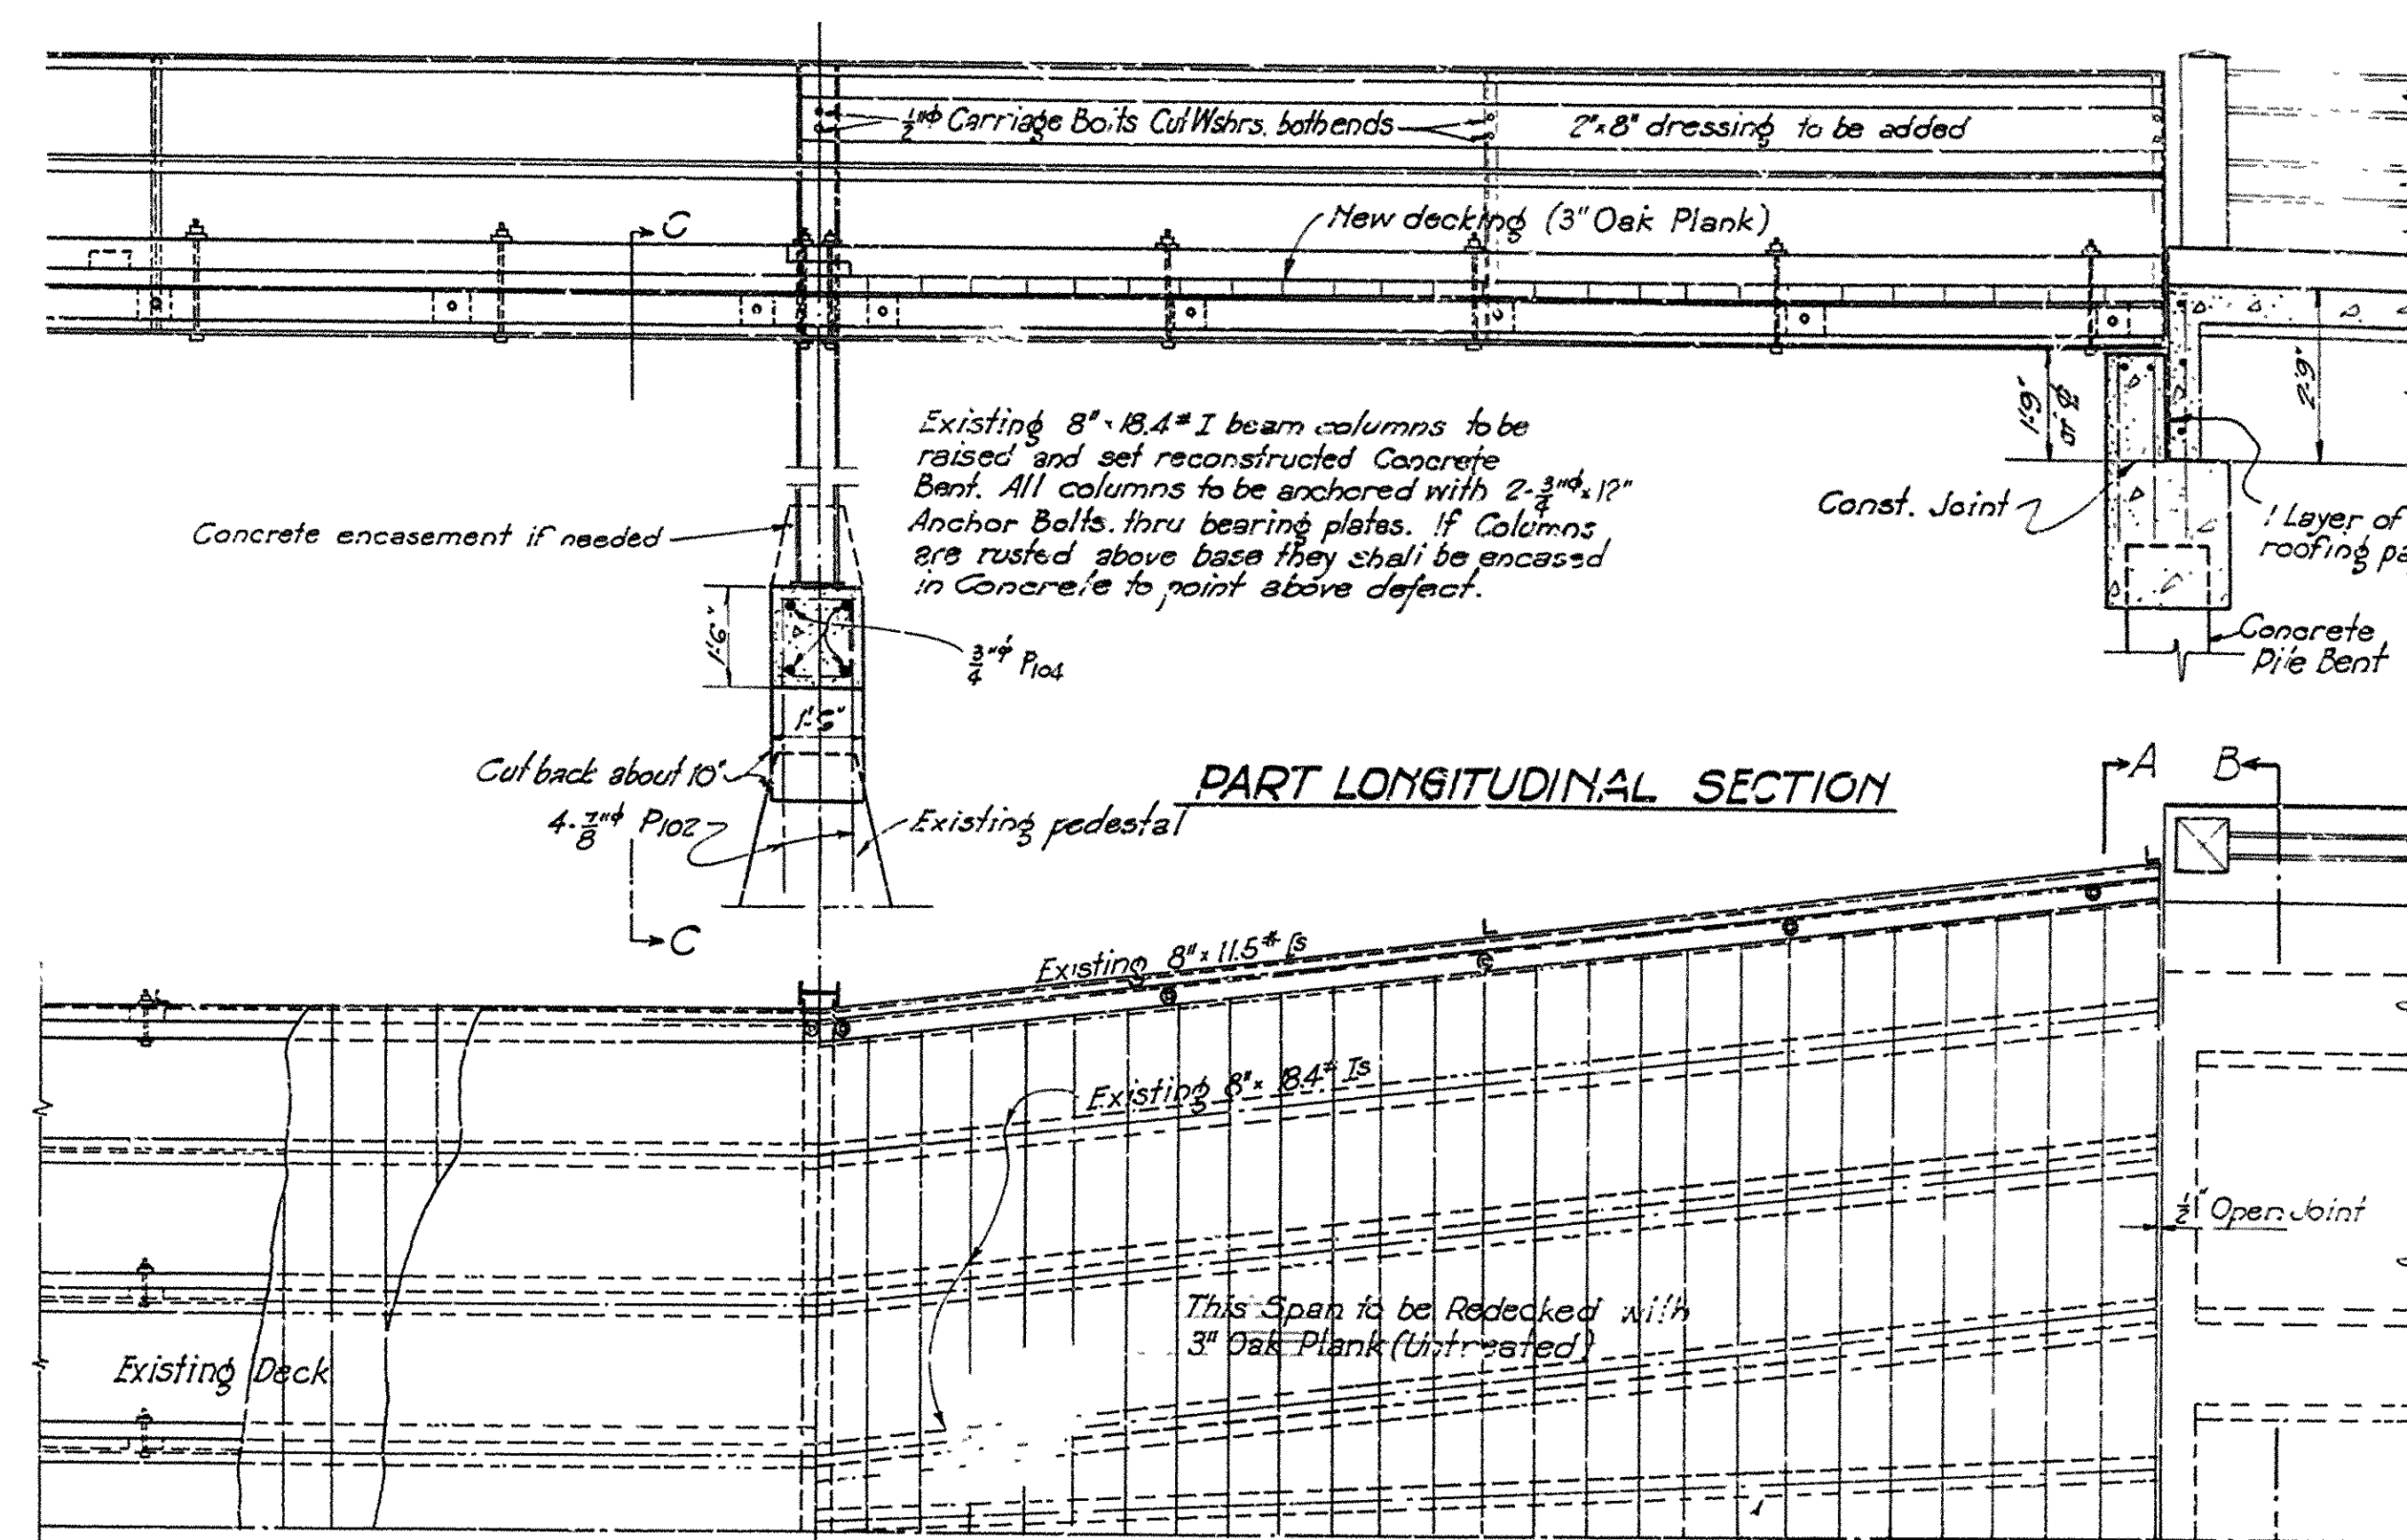 1/2"ϕ Carriage Bolts Cut Wshrs. both ends
2"x8" dressing to be added
New decking (3" Oak Plank)
C
Existing 8"x18.4# I beam columns to be
raised and set reconstructed Concrete
Bent. All columns to be anchored with 2-3/4"ϕx12"
Anchor Bolts. thru bearing plates. If Columns
are rusted above base they shall be encased
in Concrete to point above defect.
Concrete encasement if needed
1'-9"
2'-9"
Const. Joint
1 Layer of
roofing
Concrete
Pile Bent
1'-6"
3/4"ϕ P104
1'-6"
Cut back about 10"
4-7/8"ϕ P102
Existing pedestal
C
PART LONGITUDINAL SECTION
A B
Existing 8"x11.5# [s
Existing 8"x18.4# Is
1/2" Open Joint
This Span to be Redecked with
3" Oak Plank (Untreated)
Existing Deck